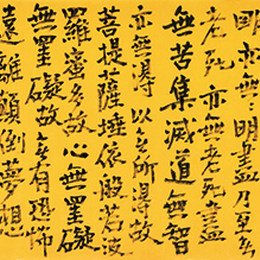 明亦無明盡乃至无
老死亦無老死盡
無苦集滅道無智
亦無得以无所得故
菩提薩埵依般若波
羅蜜多故心無罣礙
無罣礙故无有恐怖
遠離顛倒夢想